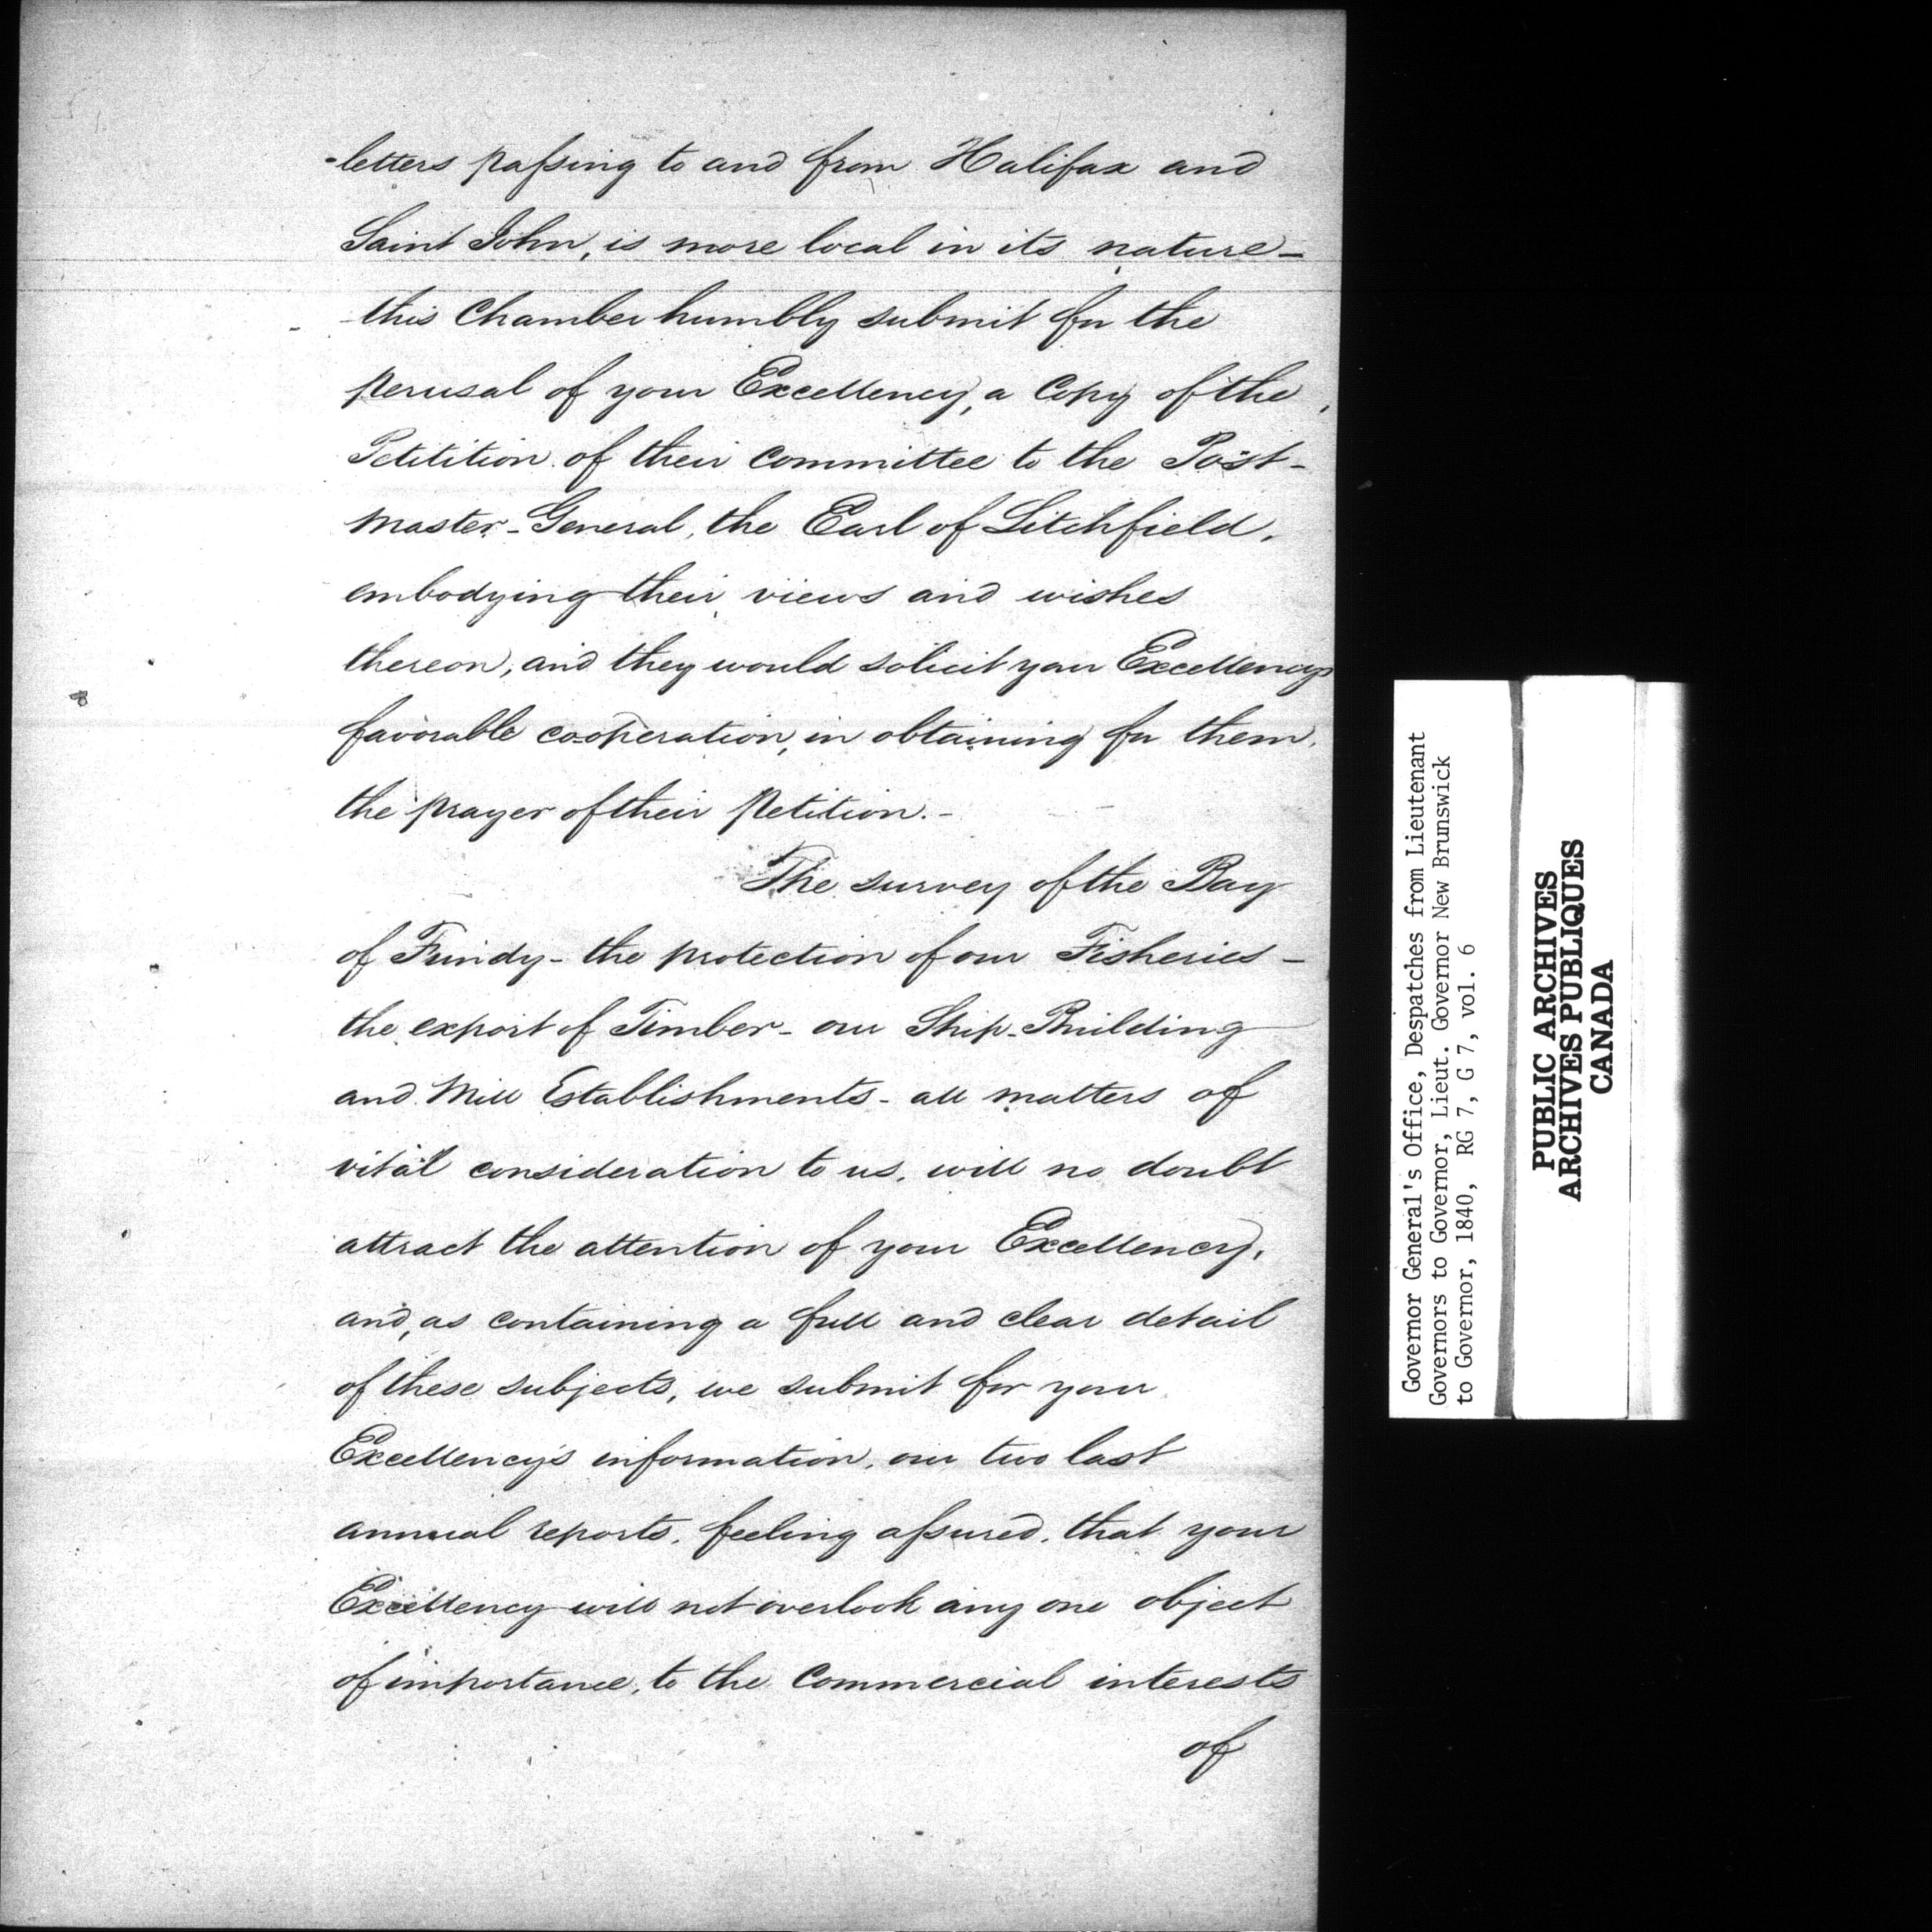 -letters passing to and from Halifax and
Saint John, is more local in its nature -
this Chamber humbly submit for the
perusal of your Excellency, a Copy of the
Petition of their Committee to the Post-
Master-General, the Earl of Litchfield,
embodying their views and wishes
thereon, and they would solicit your Excellency's
favorable co-operation, in obtaining for them,
the prayer of their Petition. -
The survey of the Bay
of Fundy - the protection of our Fisheries -
the export of Timber - our Ship-Building
and Mill Establishments - all matters of
vital consideration to us, will no doubt
attract the attention of your Excellency,
and, as containing a full and clear detail
of these subjects, we submit for your
Excellency's information, our two last
annual reports, feeling assured, that your
Excellency will not overlook any one object
of importance, to the Commercial interests
of
Governor General's Office, Despatches from Lieutenant
Governors to Governor, Lieut. Governor New Brunswick
to Governor, 1840, RG 7, G 7, vol. 6
PUBLIC ARCHIVES
ARCHIVES PUBLIQUES
CANADA